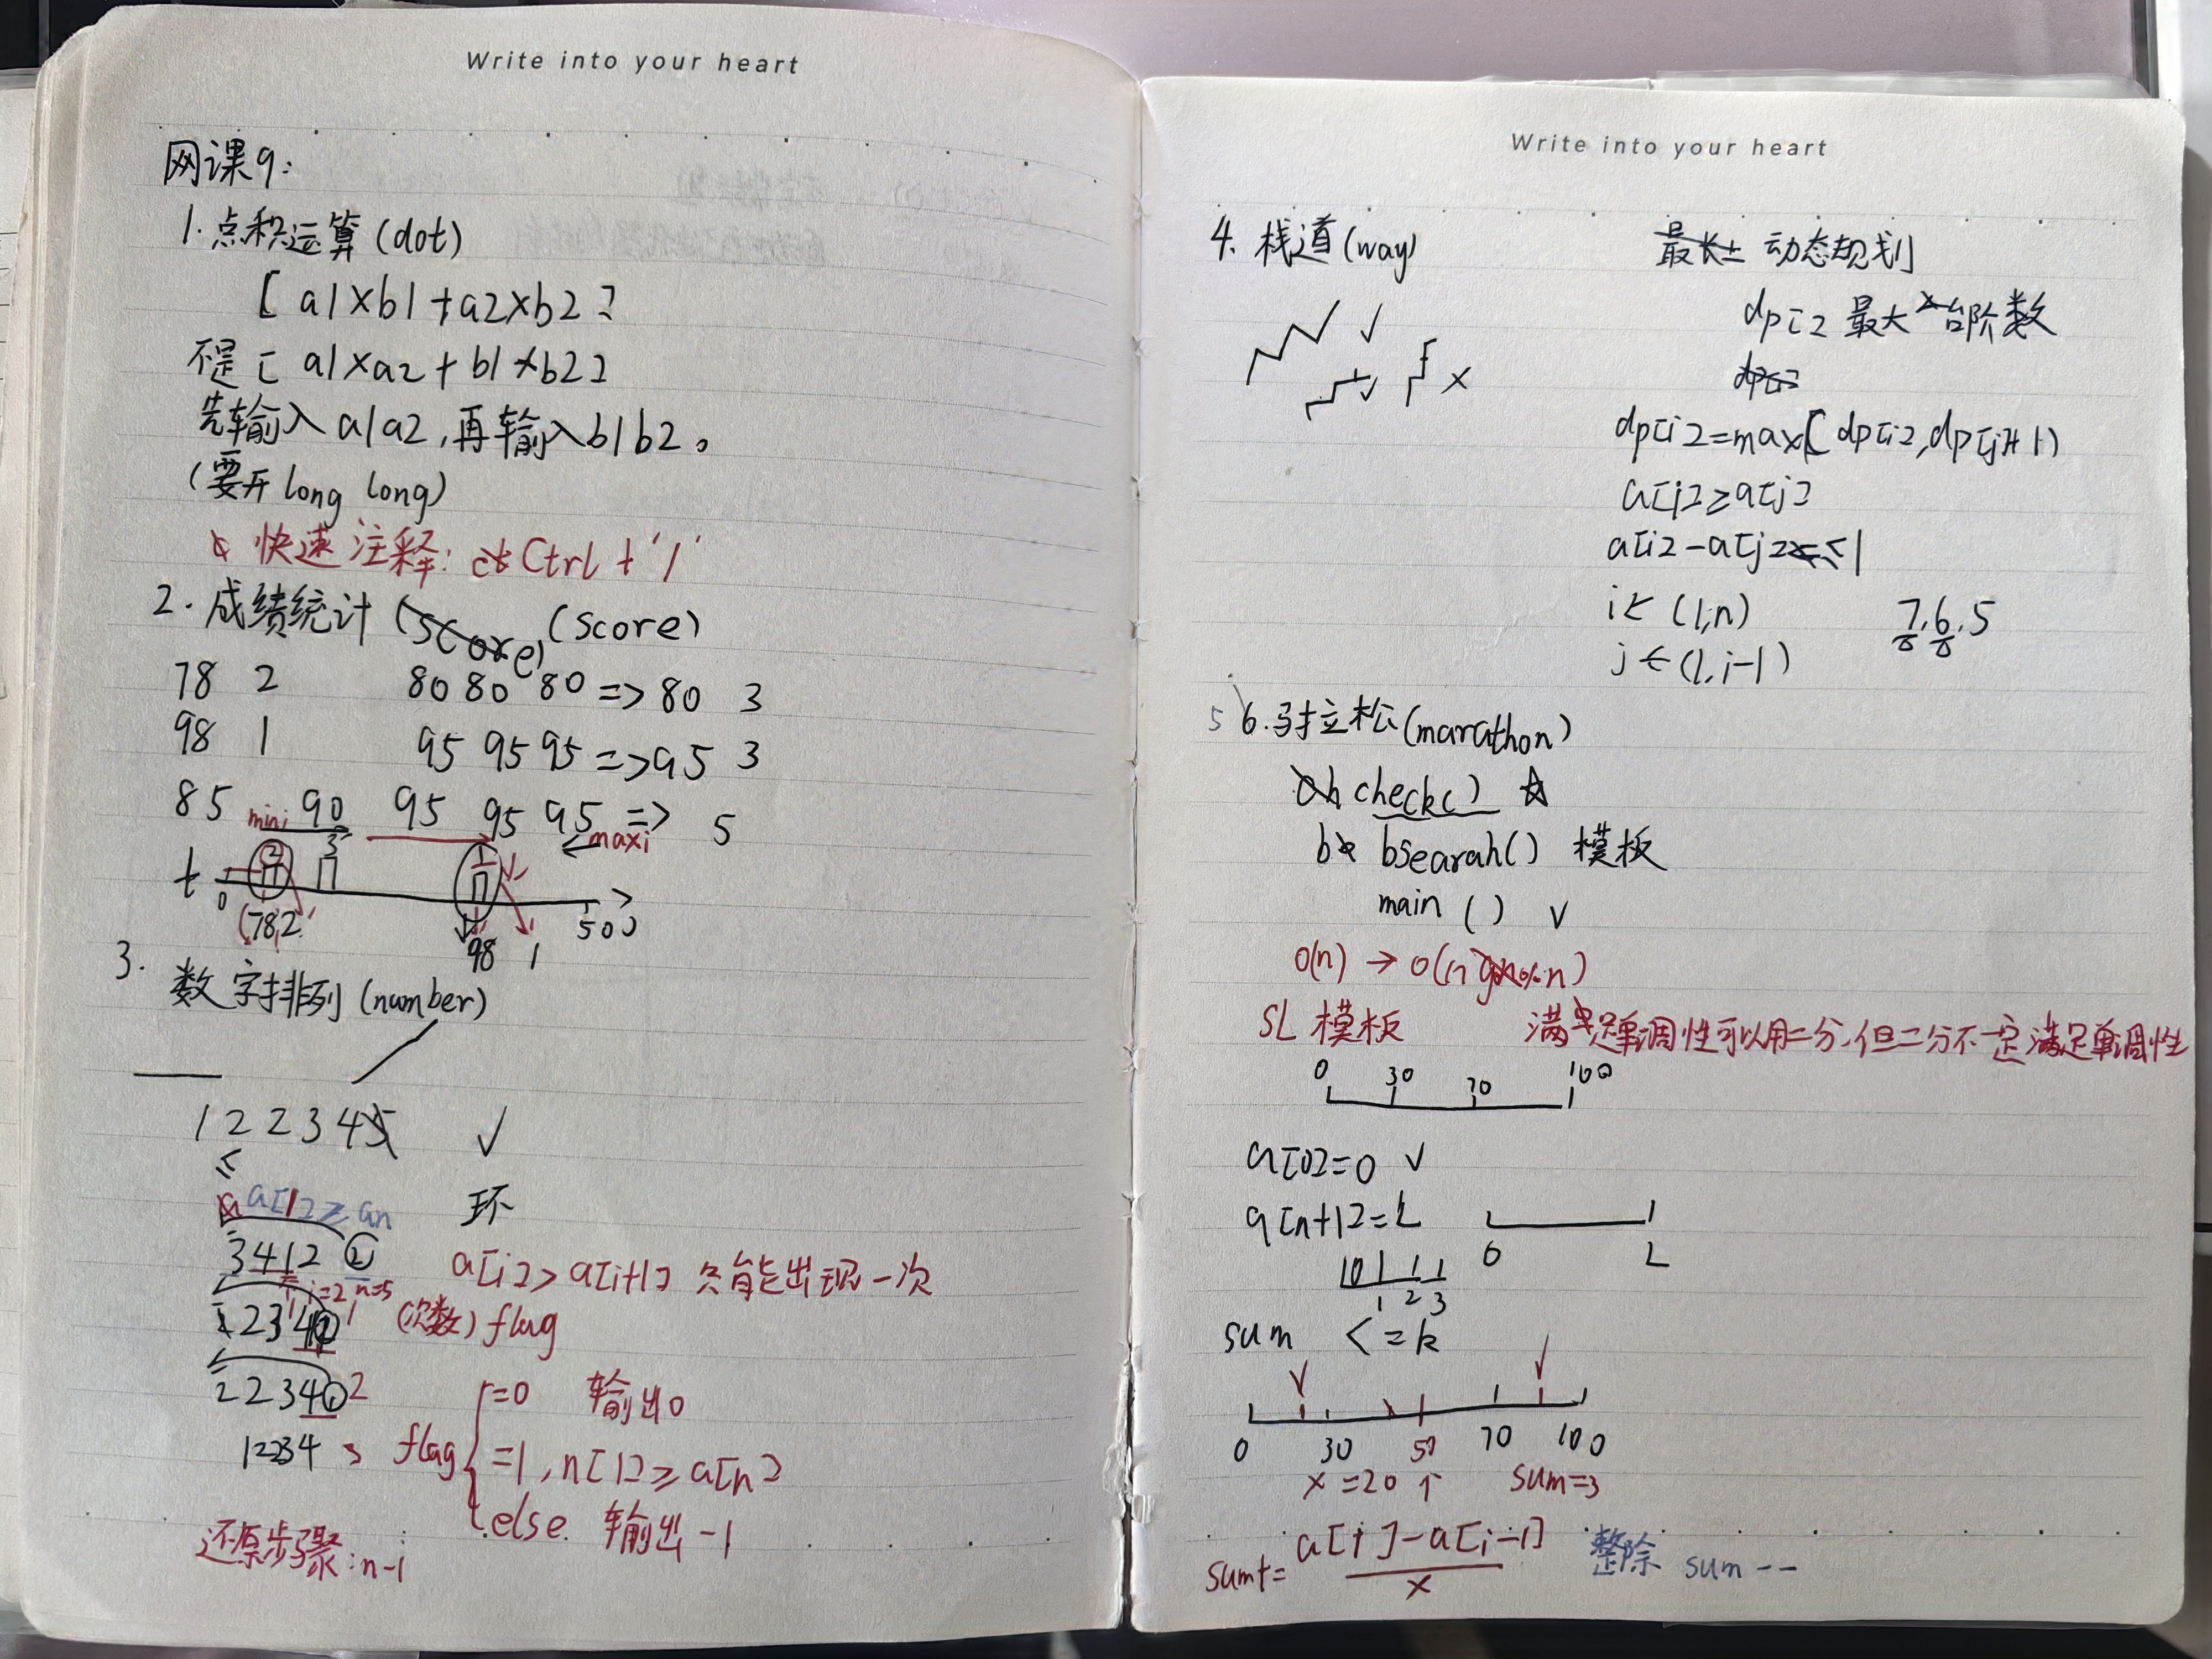 Write into your heart
网课9:
1.点积运算(dot)
[a1×b1+a2×b2]
不是[a1×a2+b1×b2]
先输入a1a2,再输入b1b2。
(要开long long)
快速注释: Ctrl+'/'
2.成绩统计 (score) (score)
78 2 80 80 80 => 80 3
98 1 95 95 95 => 95 3
85 90 95 95 95 => 5
mini maxi
2 3 1
t 0 500
(78,2 98 1
3.
数字排列(number)
1 2 2 3 4 5 √
≤
a[1]≥an 环
3412② a[i]>a[i+1]只能出现一次
i=2 n=5
(次数)flag
2234① 2
=0 输出0
12234 flag =1,n[1]≥a[n]
else 输出-1
还原步骤:n-i
Write into your heart
4.栈道(way) 最长上 动态规划
√ dp[i]最大台阶数
√ × dp[i]
dp[i]=max(dp[i],dp[j]+1)
a[i]≥a[j]
a[i]-a[j]≤1
i←(1,n) 7,6,5
j←(1,i-1)
5 6.马拉松(marathon)
check() ☆
bsearah() 模板
main() √
O(n)→
SL模板 满足单调性可以用二分,但二分不一定满足单调性
0 30 70 100
a[0]=0 √
a[n+1]=L 0 L
1 2 3
sum <=k
√ √
0 30 50 70 100
x=20↑ sum=3
sum+=a[i]-a[i-1]/x 整除 sum--